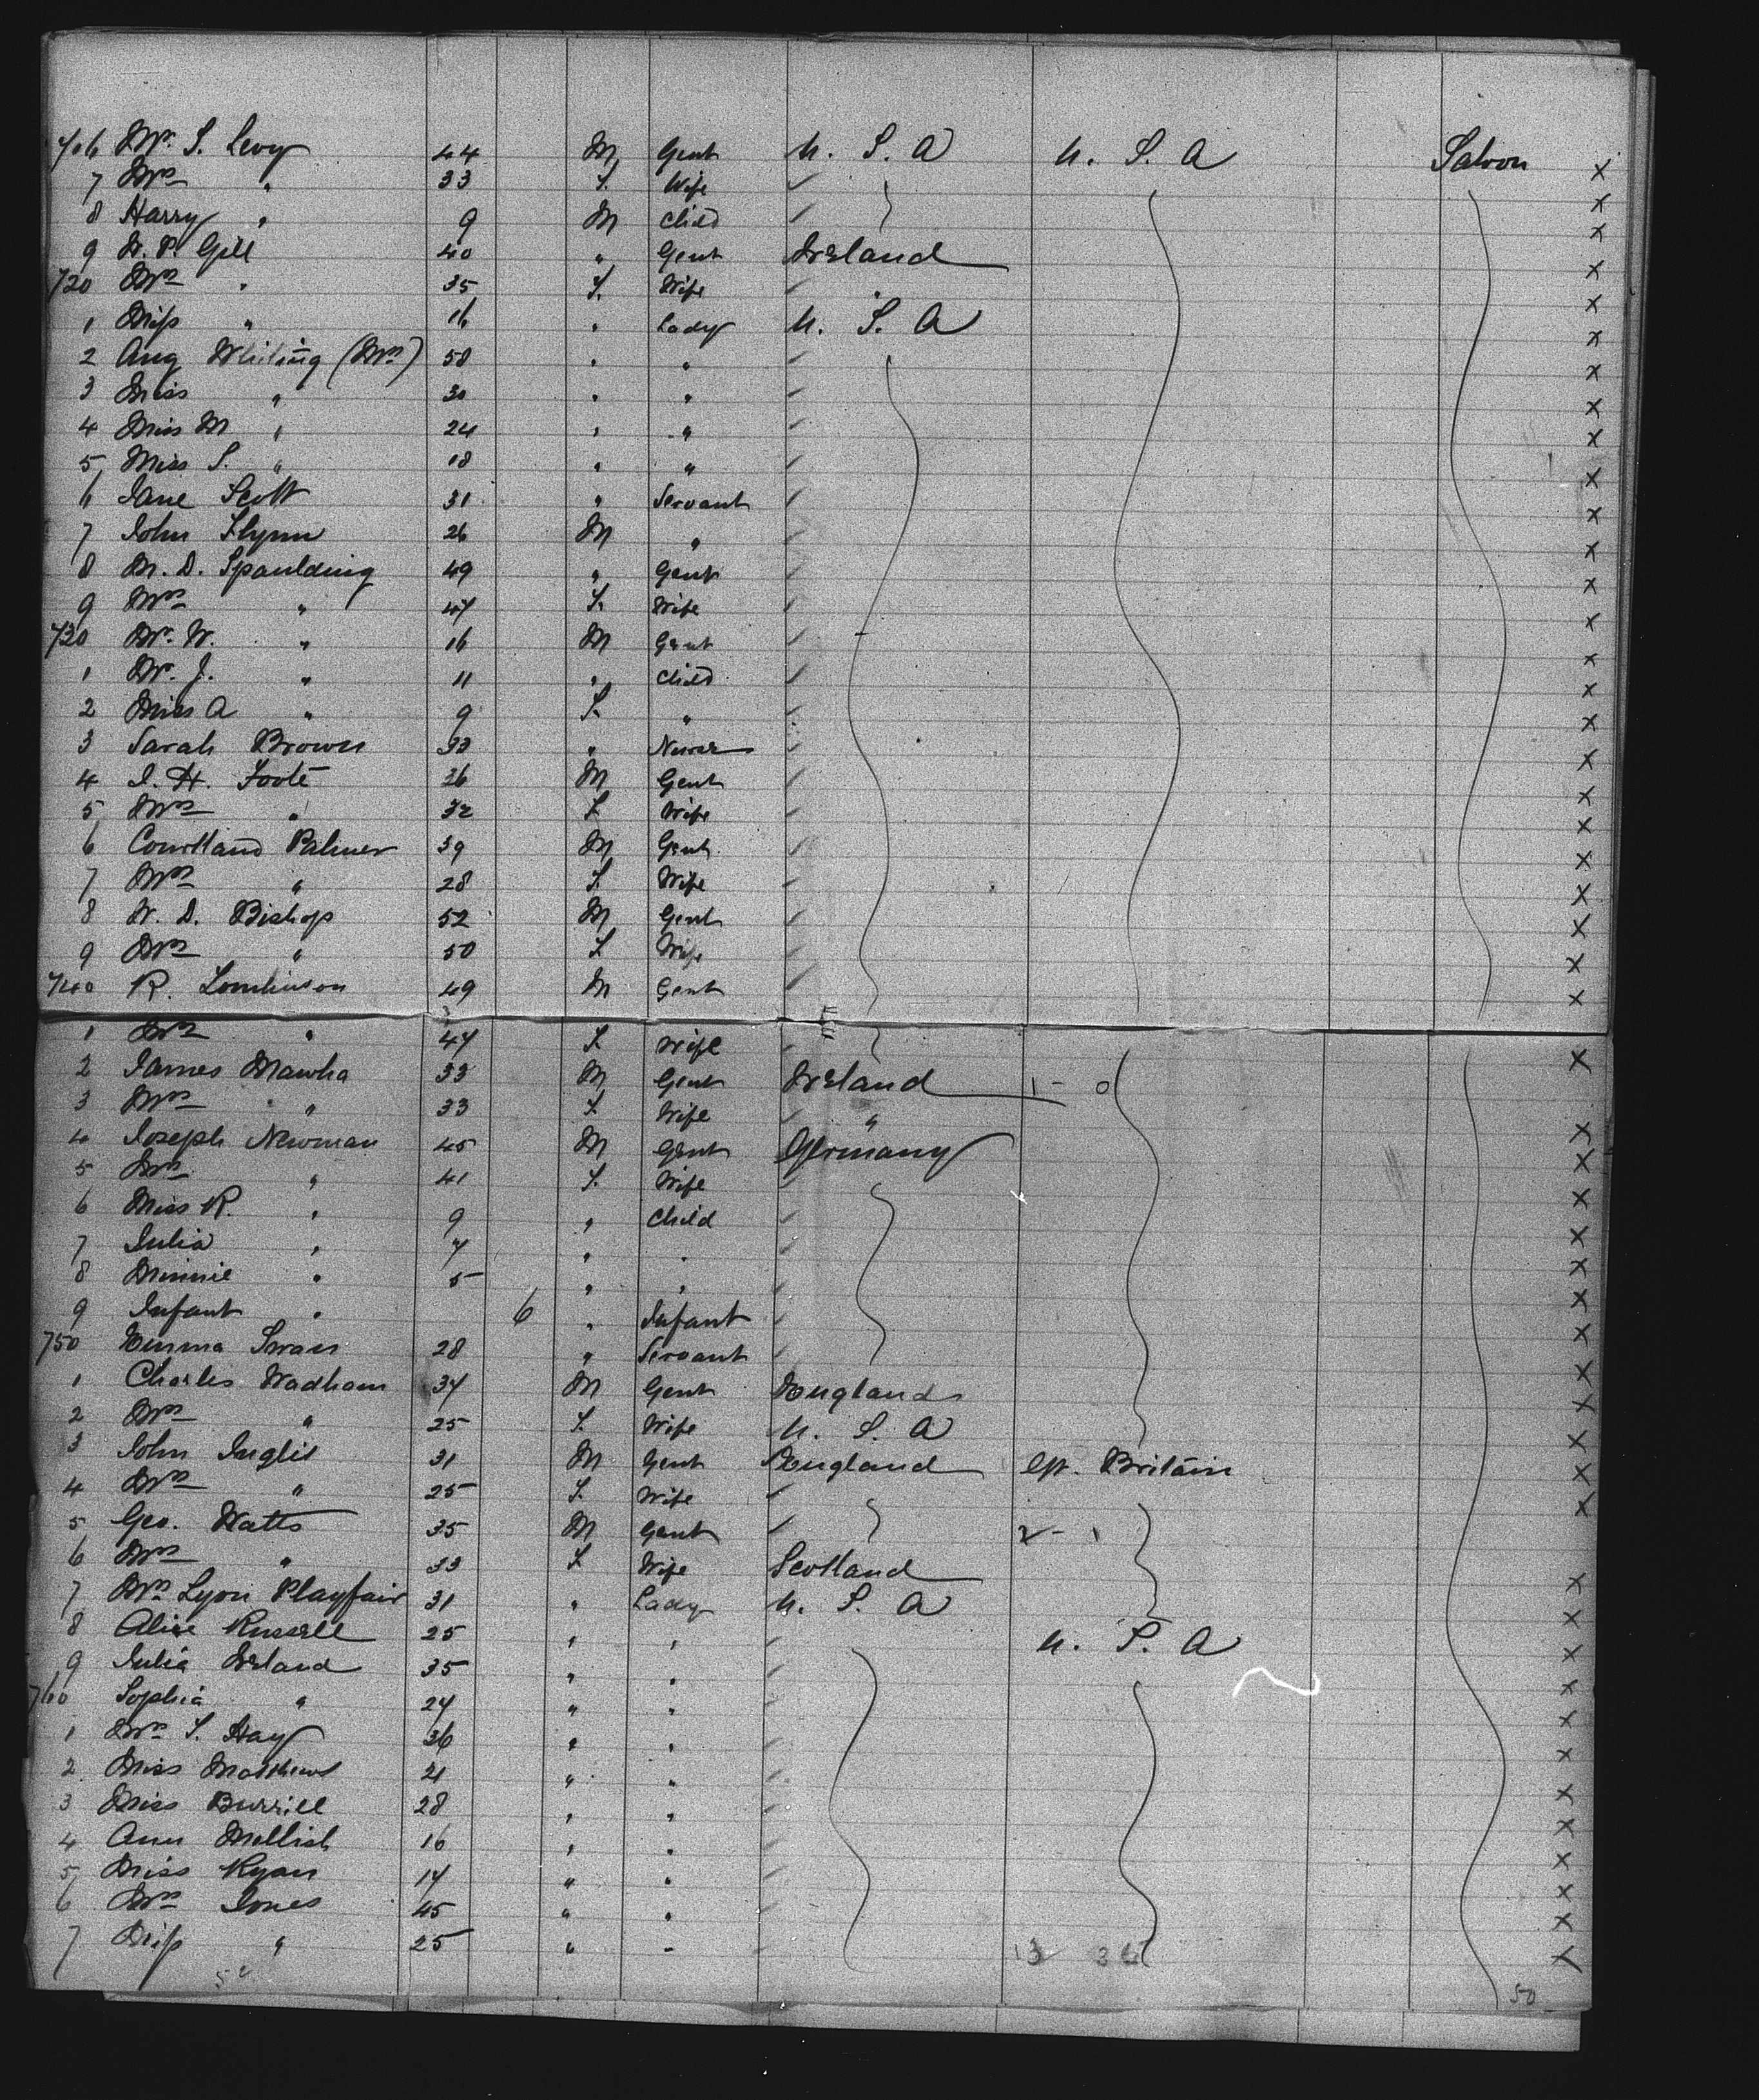 716 Mr. S. Levy 44 M Gent U. S. A U. S. A Saloon x
7 Mrs " 33 F. Wife x
8 Harry " 9 M Child x
9 W. P. Gill 40 " Gent Ireland x
720 Mrs " 35 F. Wife " x
1 Miss " 16 " Lady U. S. A x
2 Aug Whiting (Mrs) 58 " " x
3 Miss " 30 " " x
4 Miss M " 24 " " x
5 Miss S. " 18 " " x
6 Jane Scott 31 " Servant x
7 John Flynn 26 M " x
8 M. D. Spaulding 49 " Gent x
9 Mrs " 47 F. Wife x
730 Mr. W. " 16 M Gent x
1 Mr. J. " 11 " Child x
2 Miss A " 9 F. " x
3 Sarah Brown 33 " Nurse x
4 J. H. Foote 36 M Gent x
5 Mrs " 32 F Wife x
6 Courtland Palmer 39 M Gent x
7 Mrs " 28 F. Wife x
8 W. D. Bishop 52 M Gent x
9 Mrs " 50 F Wife x
740 R. Tomlinson 49 M Gent x
1 Mrs " 47 F. Wife x
2 James Mawha 33 M Gent Ireland 1 - 0
3 Mrs " 33 F Wife " x
4 Joseph Newman 45 M Gent Germany x
5 Mrs " 41 F. Wife x
6 Miss R. " 9 " Child x
7 Julia " 7 " " x
8 Minnie " 5 " " x
9 Infant " 6 " Infant x
750 Emma Swan 28 " Servant x
1 Charles Wadham 34 M Gent England x
2 Mrs " 25 F. Wife U. S. A x
3 John Inglis 31 M Gent England Gt. Britain x
4 Mrs " 25 F. Wife x
5 Geo. Watts 35 M Gent 2 - 1
6 Mrs " 33 F Wife Scotland x
7 Mrs Lyon Playfair 31 " Lady U. S. A x
8 Alice Russell 25 " " U. S. A x
9 Julia Ireland 35 " " x
760 Sophia " 24 " " x
1 Mrs S. Hay 36 " " x
2 Miss Matthews 21 " " x
3 Miss Burrill 28 " " x
4 Ann Mellish 16 " " x
5 Miss Ryan 14 " " x
6 Mrs Jones 45 " " x
7 Miss " 25 " " x
50